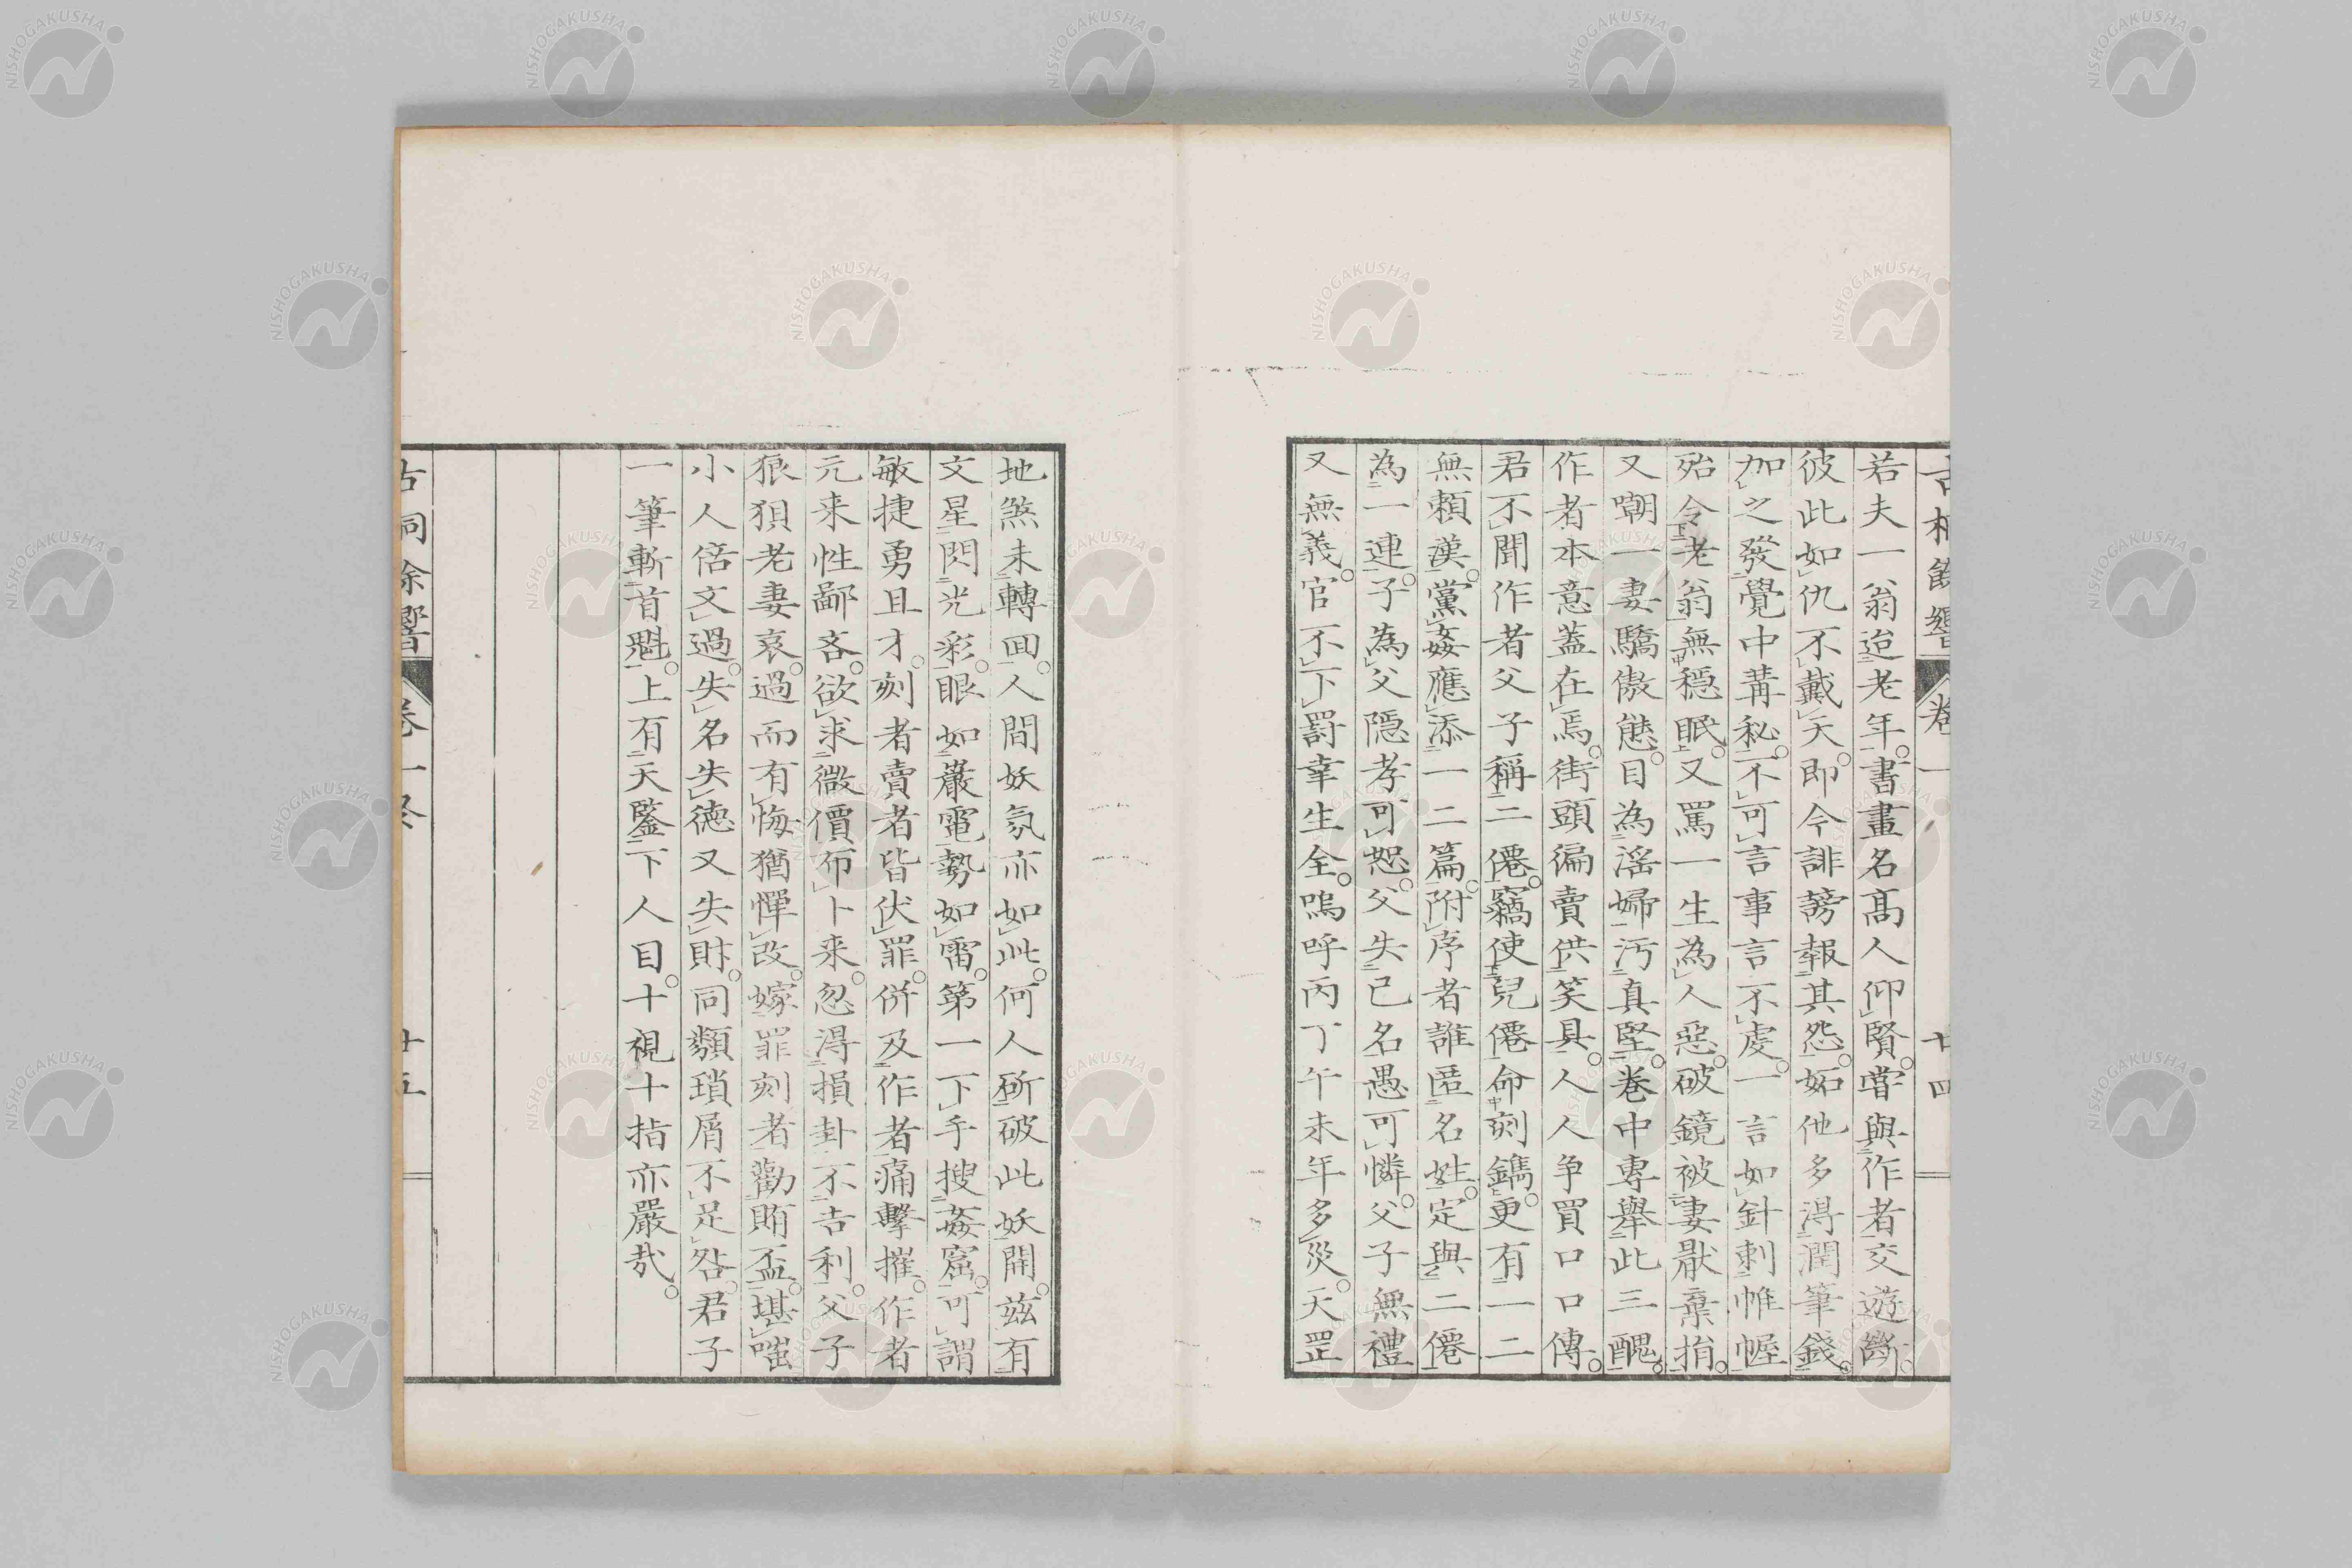 古桐餘響 卷一 廿四
若夫一翁迨老年。書畫名髙人仰賢。嘗與作者交遊斷。
彼此如仇不戴天。即今誹謗報其怨。妬他多淂潤筆錢。
加之發覺中冓秘。不可言事言不虔。一言如針刺帷幄
殆令老翁無穩眠。又罵一生為人惡。破鏡被妻厭棄捐。
又嘲一妻驕傲態。目為滛婦汚真堅。卷中專舉此三醜。
作者本意蓋在焉。街頭徧賣供笑具。人人争買口口傳。
君不聞作者父子稱二僊。竊使兒僊命刻鐫。更有一二
無頼漢。黨姦應添一二篇。附序者誰匿名姓。定與二僊
為一連。子為父隱孝可恕。父失已名愚可憐。父子無禮
又無義。官不下罸幸生全。嗚呼丙丁午未年多災。天罡
地煞未轉回。人間妖氛亦如此。何人斫破此妖開。兹有
文星閃光彩。眼如巖電勢如雷。第一下手搜姦窟。可謂
敏捷勇且才。刻者賣者皆伏罪。併及作者痛擊摧。作者
元来性鄙吝。欲求微價布卜来。忽淂損卦不吉利。父子
狼狽老妻哀。過而有悔猶憚改。嫁罪刻者勸賄盃。堪嗤
小人倍文過。失名失德又失財。同類瑣屑不足咎。君子
一筆斬首魁。上有天鑒下人目。十視十指亦嚴哉。
古桐餘響 卷一終 廿五
NISHOGAKUSHA